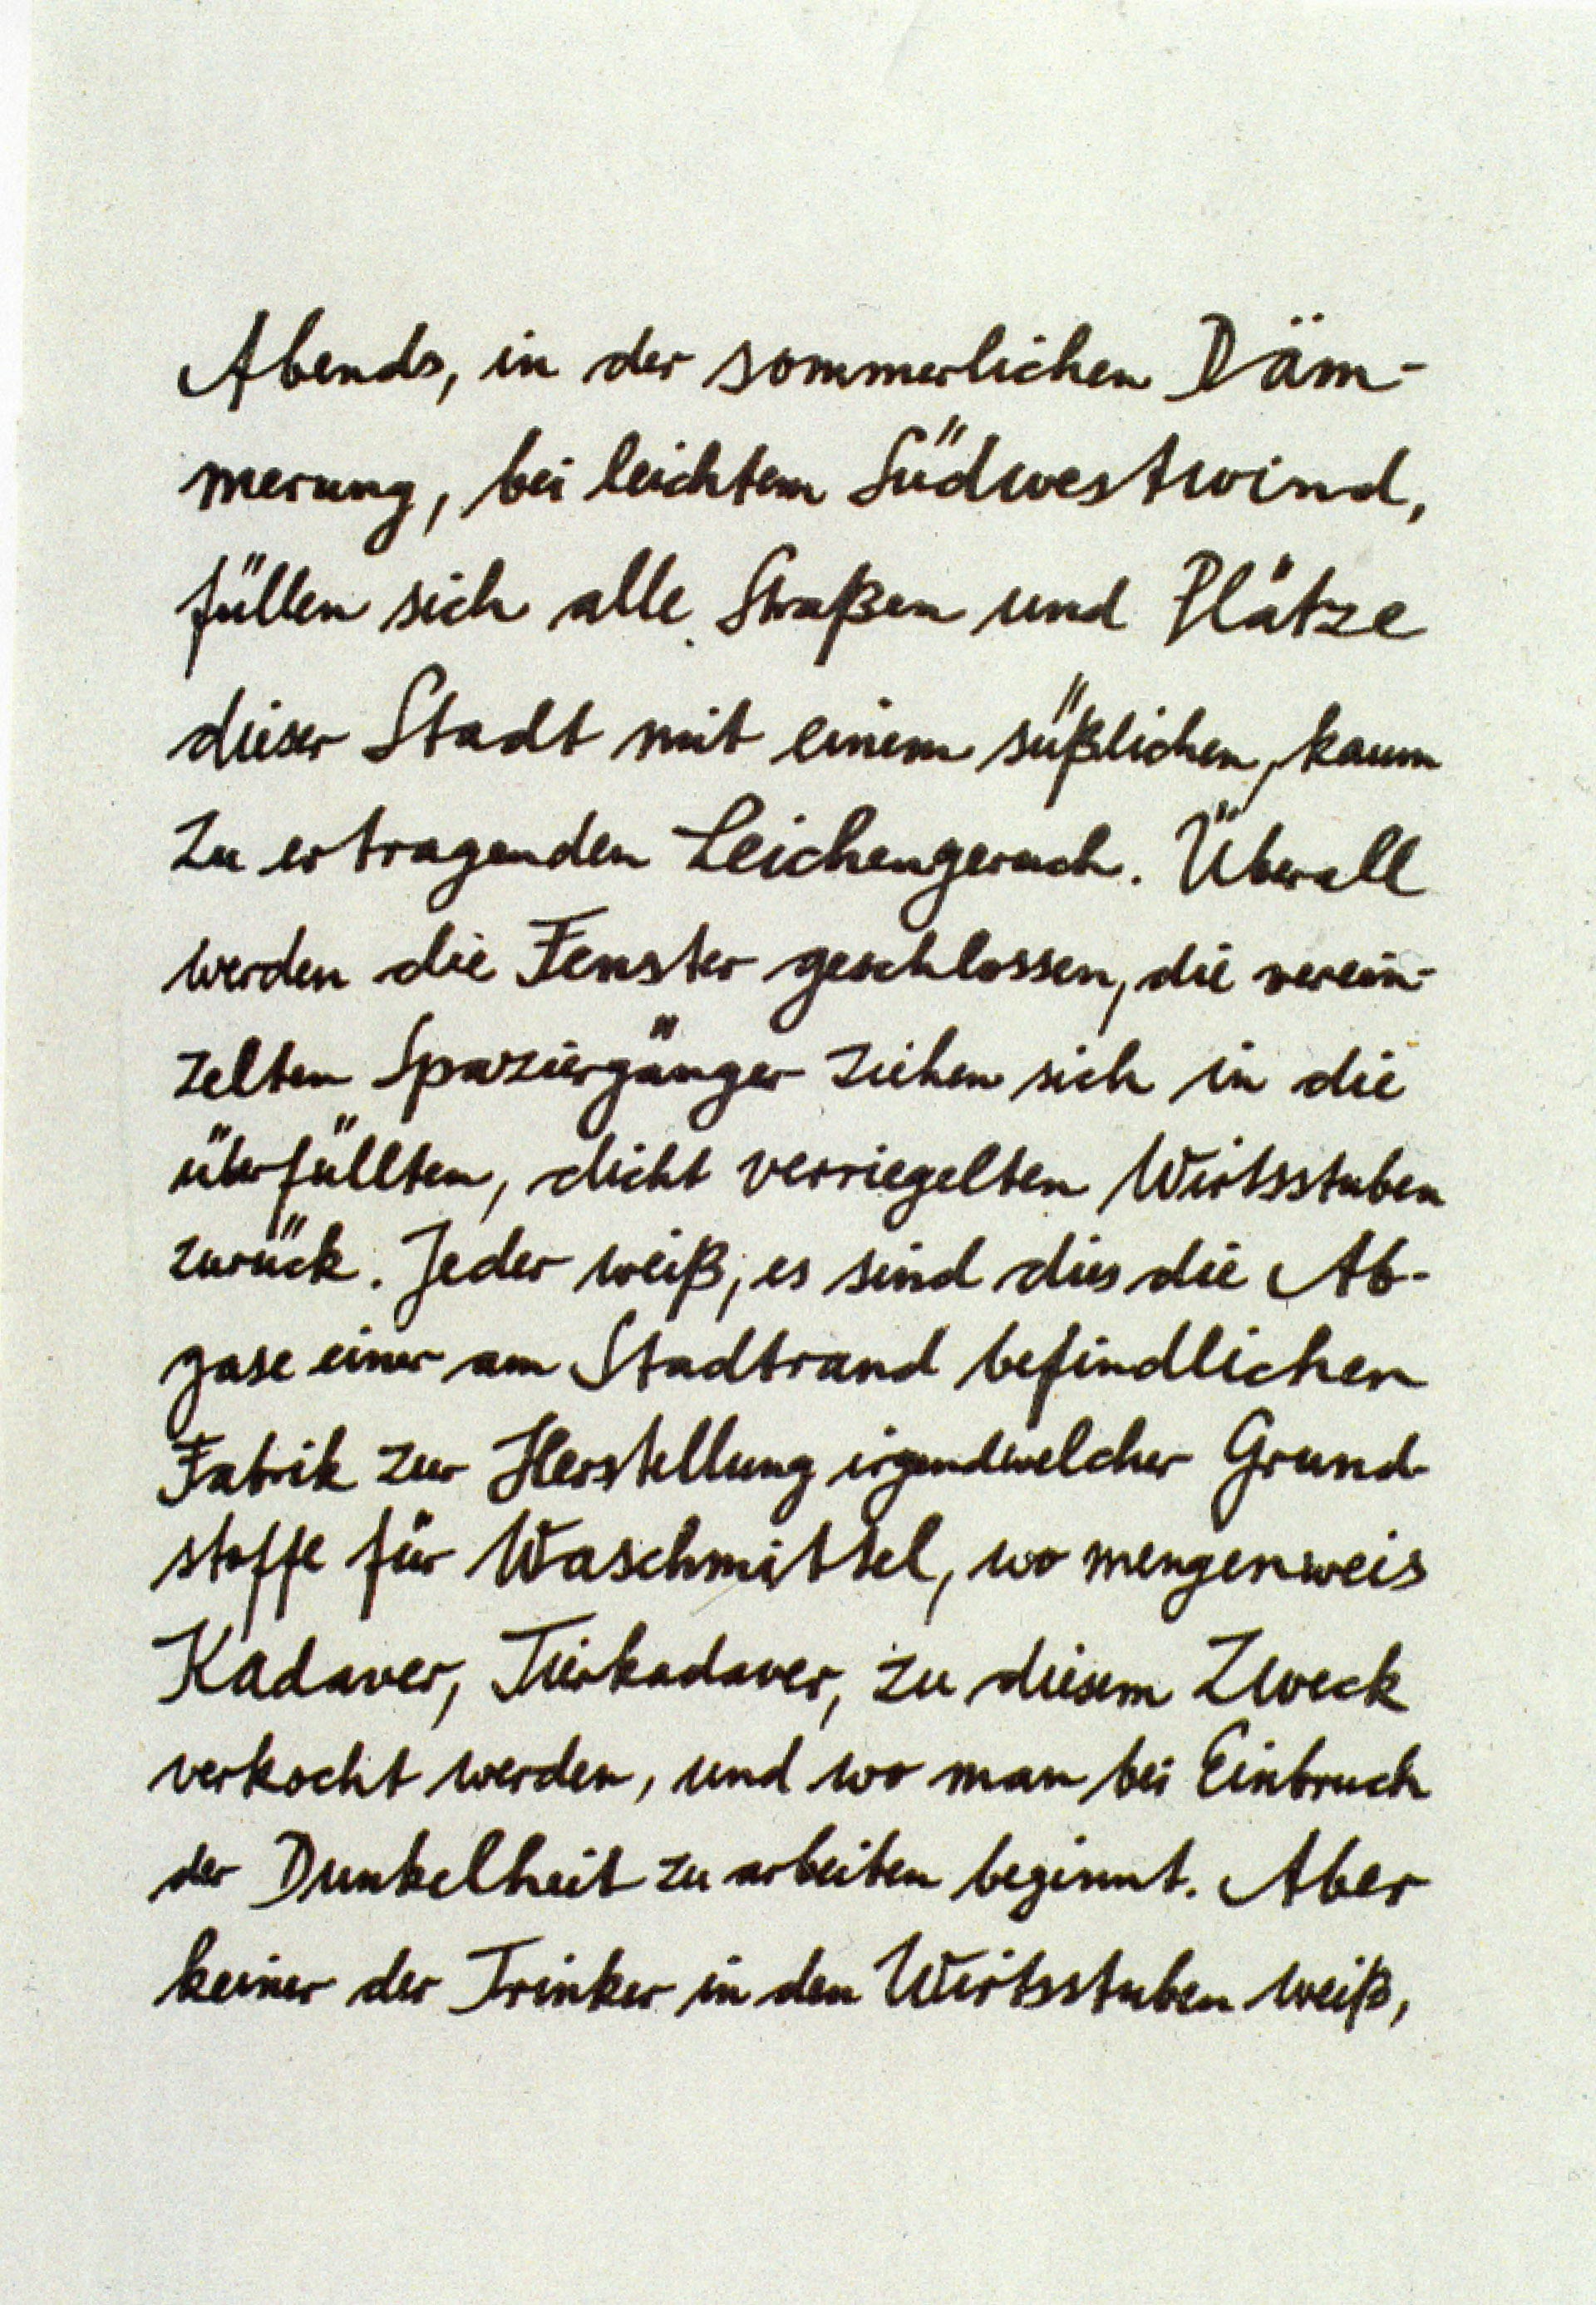 Abends, in der sommerlichen Däm-
merung, bei leichtem Südwestwind,
füllen sich alle Straßen und Plätze
dieser Stadt mit einem süßlichen, kaum
zu ertragenden Leichengeruch. Überall
werden die Fenster geschlossen, die verein-
zelten Spaziergänger ziehen sich in die
überfüllten, dicht verriegelten Wirtsstuben
zurück. Jeder weiß, es sind dies die Ab-
gase einer am Stadtrand befindlichen
Fabrik zur Herstellung irgendwelcher Grund-
stoffe für Waschmittel, wo mengenweis
Kadaver, Tierkadaver, zu diesem Zweck
verkocht werden, und wo man bei Einbruch
der Dunkelheit zu arbeiten beginnt. Aber
keiner der Trinker in den Wirtsstuben weiß,